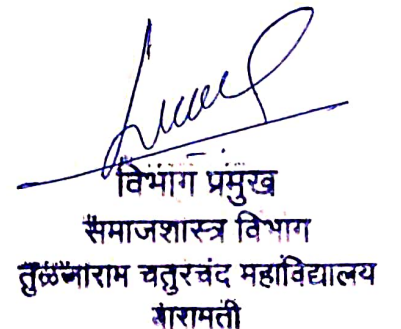 विभाग प्रमुख
समाजशास्त्र विभाग
तुळजाराम चतुरचंद महाविद्यालय
बारामती